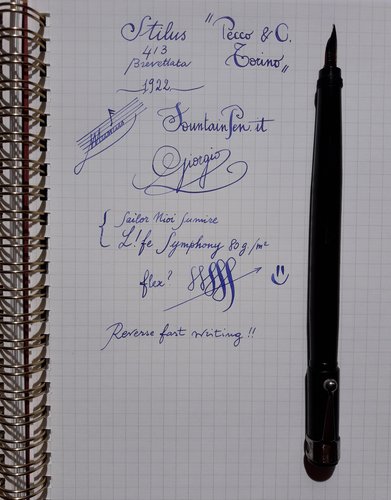 Stilus "Pecco & C.
4/3 Torino"
Brevettata
1922
FountainPen.it
Giorgio
{ Sailor Nioi Sumire
L!fe Symphony 80 g/m²
flex?
Reverse fast writing !!